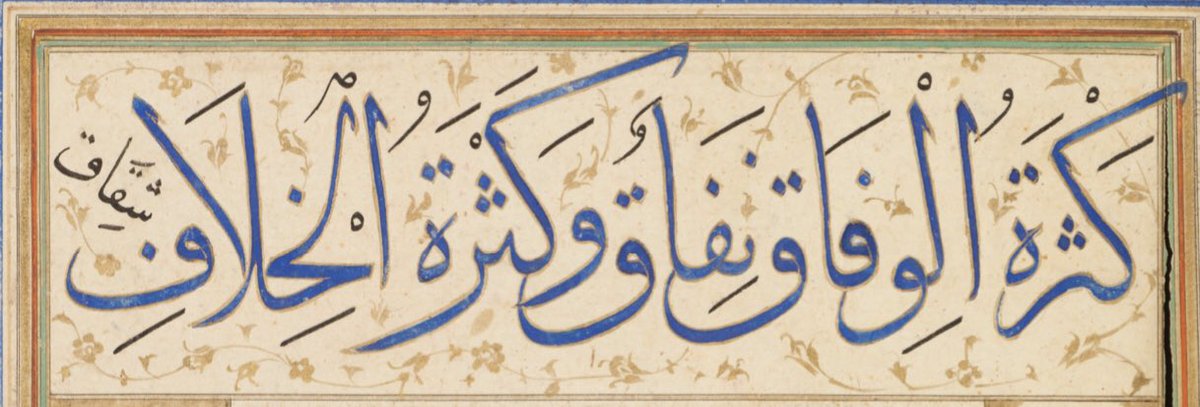 كَثْرَةُ الْوِفَاقِ نِفَاقٌ وَكَثْرَةُ الْخِلَافِ شِقَاق